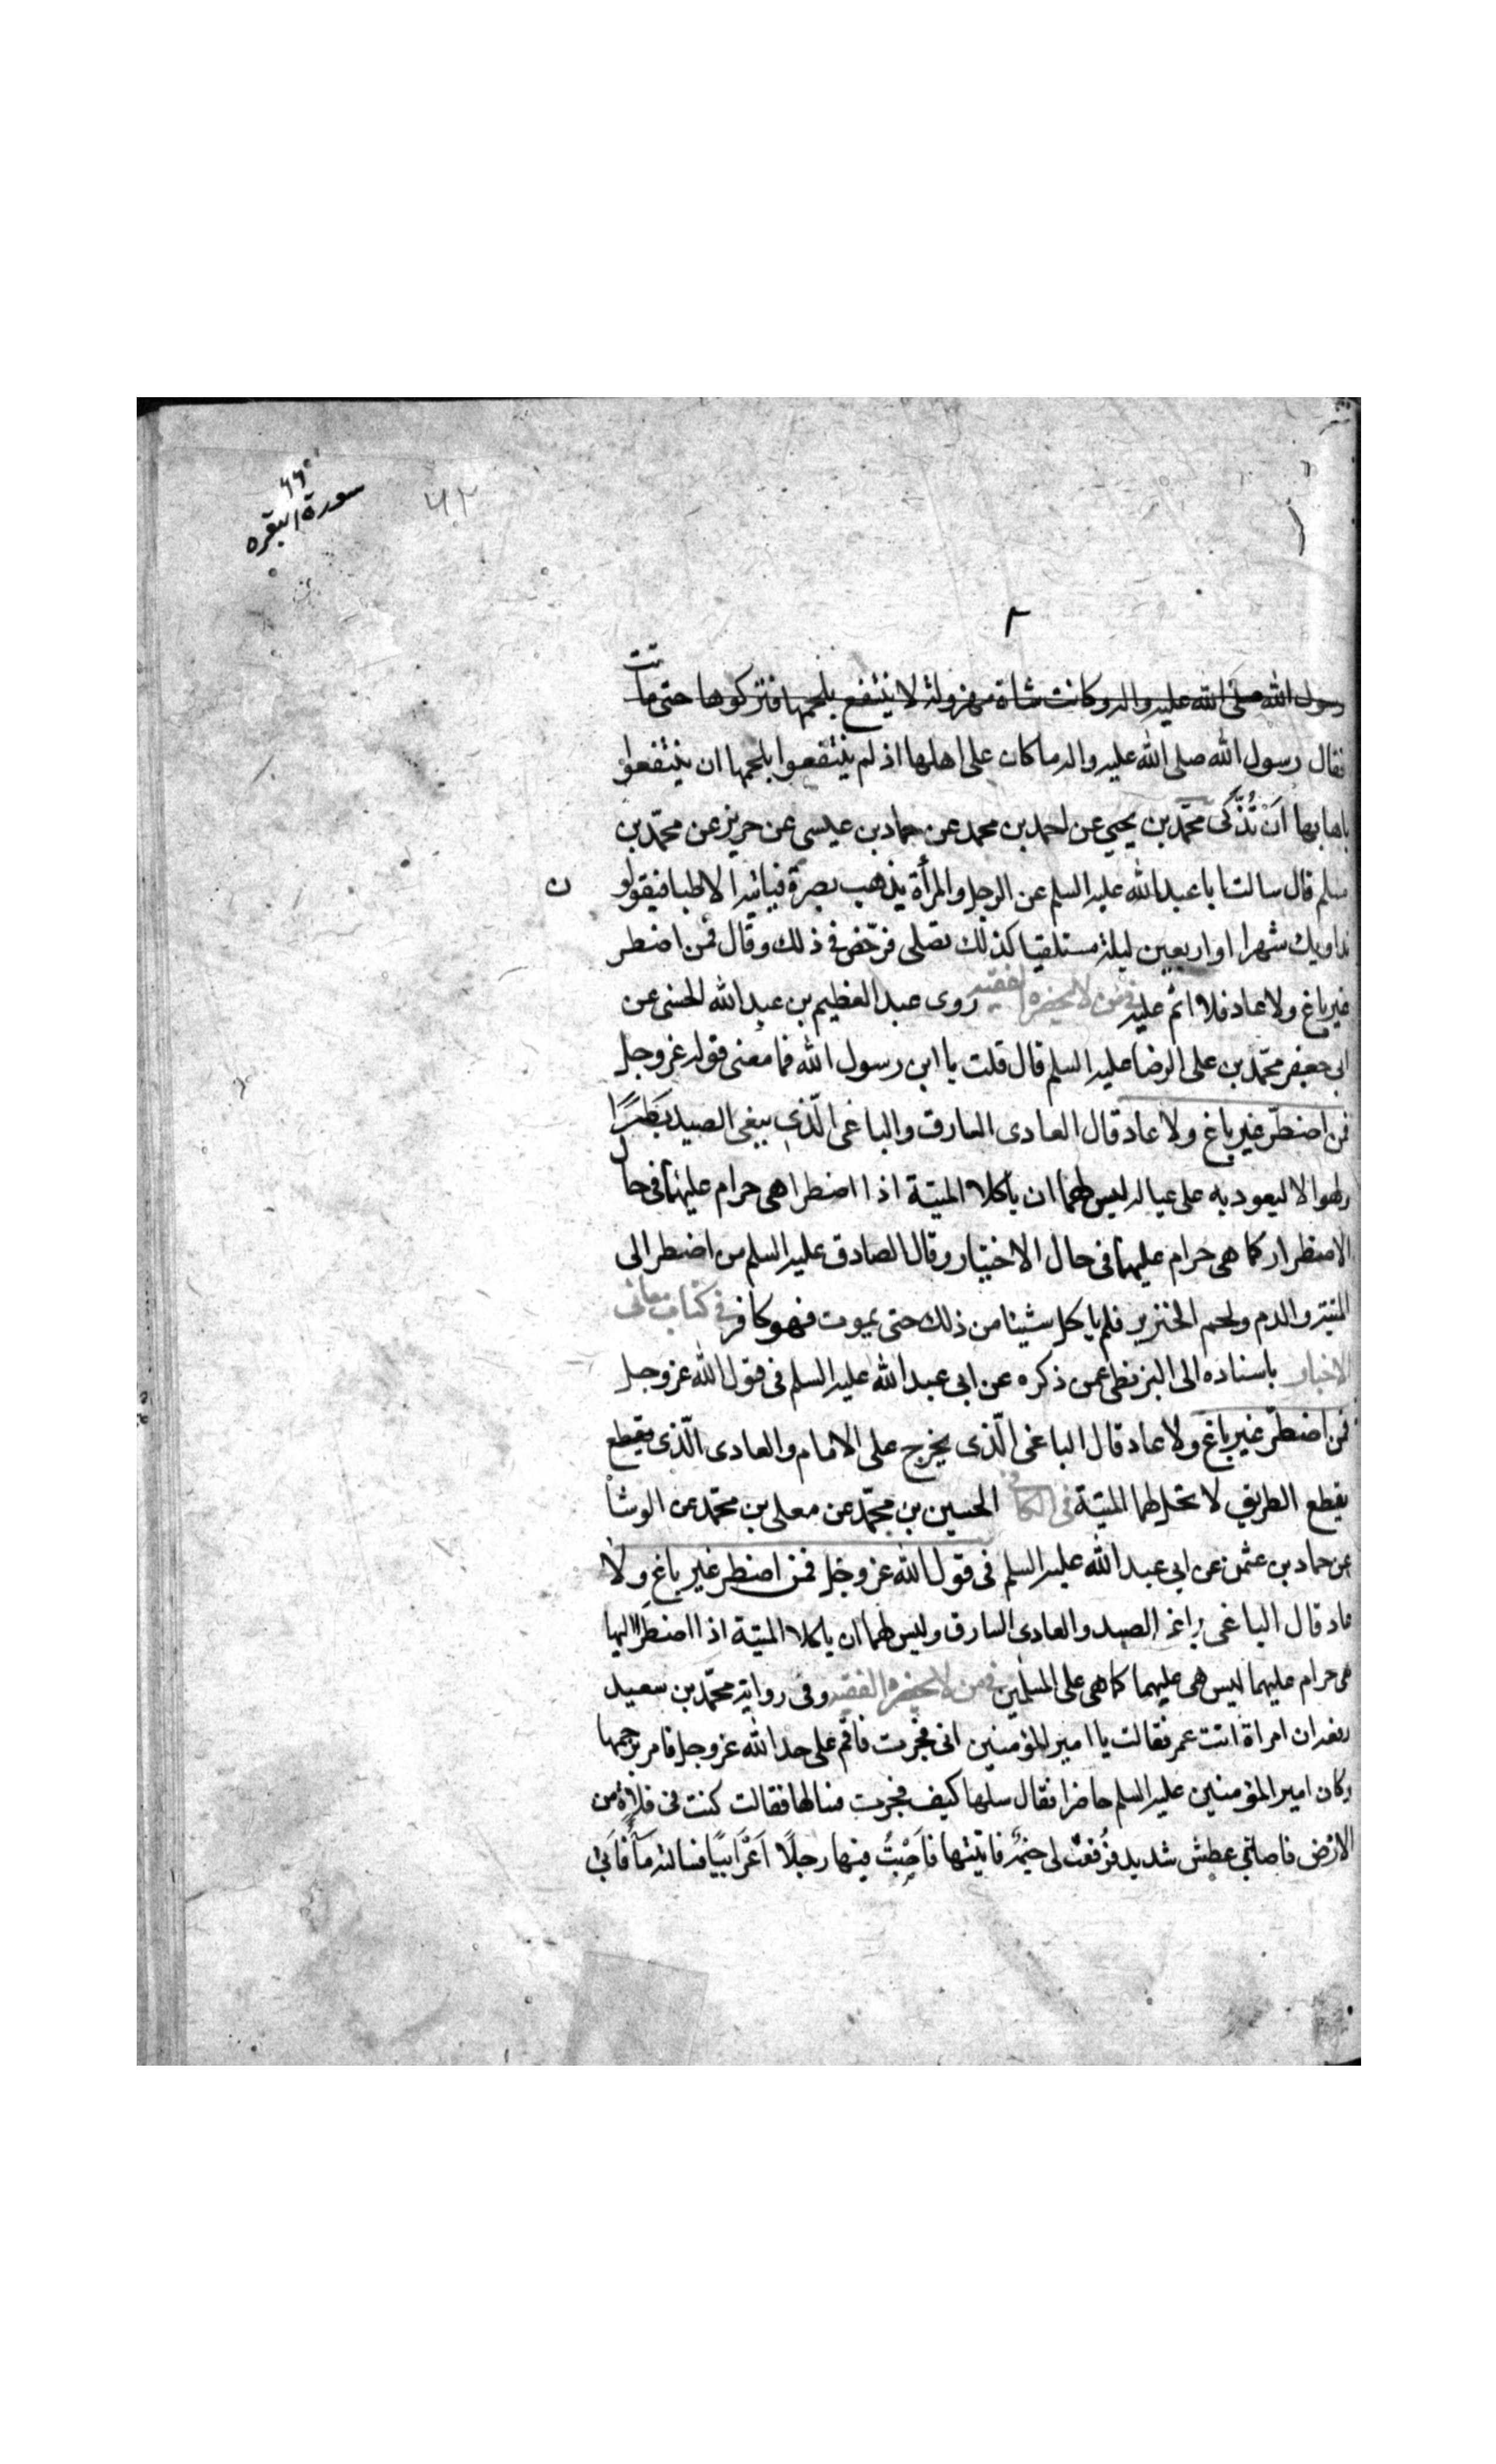 سورة البقره
٦٢
٢
رسول الله صلى الله عليه واله وكانت شاة مهزولة لا ينتفع بلحمها فتركوها حتى ماتت
فقال رسول الله صلى الله عليه واله ما كان على اهلها اذ لم ينتفعوا بلحمها ان ينتفعوا
باهابها اَنْ تُذَّكى محمّد بن يحيى عن احمد بن محمد عن حماد بن عيسى عن حريز عن محمّد بن
مسلم قال سالت ابا عبد الله عليه السلم عن الرجل والمرأة يذهب بصره فياتيه الاطبا فيقولون
نداويك شهرا او اربعين ليلة مستلقيا كذلك تصلى فرخّض فى ذلك وقال فمن اضطر
غير باغ ولا عاد فلا اثم عليه فى من لا يحضره الفقيه روى عبد العظيم بن عبد الله الحسنى عن
ابى جعفر محمّد بن على الرضا عليه السلم قال قلت يا ابن رسول الله فما معنى قوله عز وجل
فمن اضطرّ غير باغ ولا عاد قال العادى السارق والباغى الّذى يبغى الصيد بَطَرًا
ولهوا لا ليعود به على عياله ليس لهما ان ياكلا الميتة اذا اضطرا هى حرام عليهما فى حال
الاضطرار كما هى حرام عليهما فى حال الاختيار وقال الصادق عليه السلم من اضطر الى
الميتة والدم ولحم الخنزير فلم ياكل شيئا من ذلك حتى يموت فهو كافر فى كتاب معانى
الاخبار باسناده الى البزنطى عمن ذكره عن ابى عبد الله عليه السلم فى قول الله عز وجل
فمن اضطرّ غير باغ ولا عاد قال الباغى الّذى يخرج على الامام والعادى الّذى يقطع
يقطع الطريق لا تحل لهما الميتة فى الكافى الحسين بن محمّد عن معلى بن محمّد عن الوشا
عن حماد بن عثمن عن ابى عبد الله عليه السلم فى قول الله عز وجل فمن اضطر غير باغ ولا
عاد قال الباغى باغى الصيد والعادى السارق وليس لهما ان ياكلا الميتة اذا اضطرّا اليها
هى حرام عليهما ليس هى عليهما كما هى على المسلمين فى من لا يحضره الفقيه وفى رواية محمّد بن سعيد
رفعه ان امراة اتت عمر فقالت يا امير المؤمنين انى فجرت فاقم على حد الله عز وجل فامر برجمها
وكان امير المؤمنين عليه السلم حاضرا فقال سلها كيف فجرت فسالها فقالت كنت فى فلاة من
الارض فاصابنى عطش شديد فرُفعت لى خيمة فاتيتها فاَصَبْتُ فيها رجلًا اَعْرَابيًا فسالته ماًء فاَبى